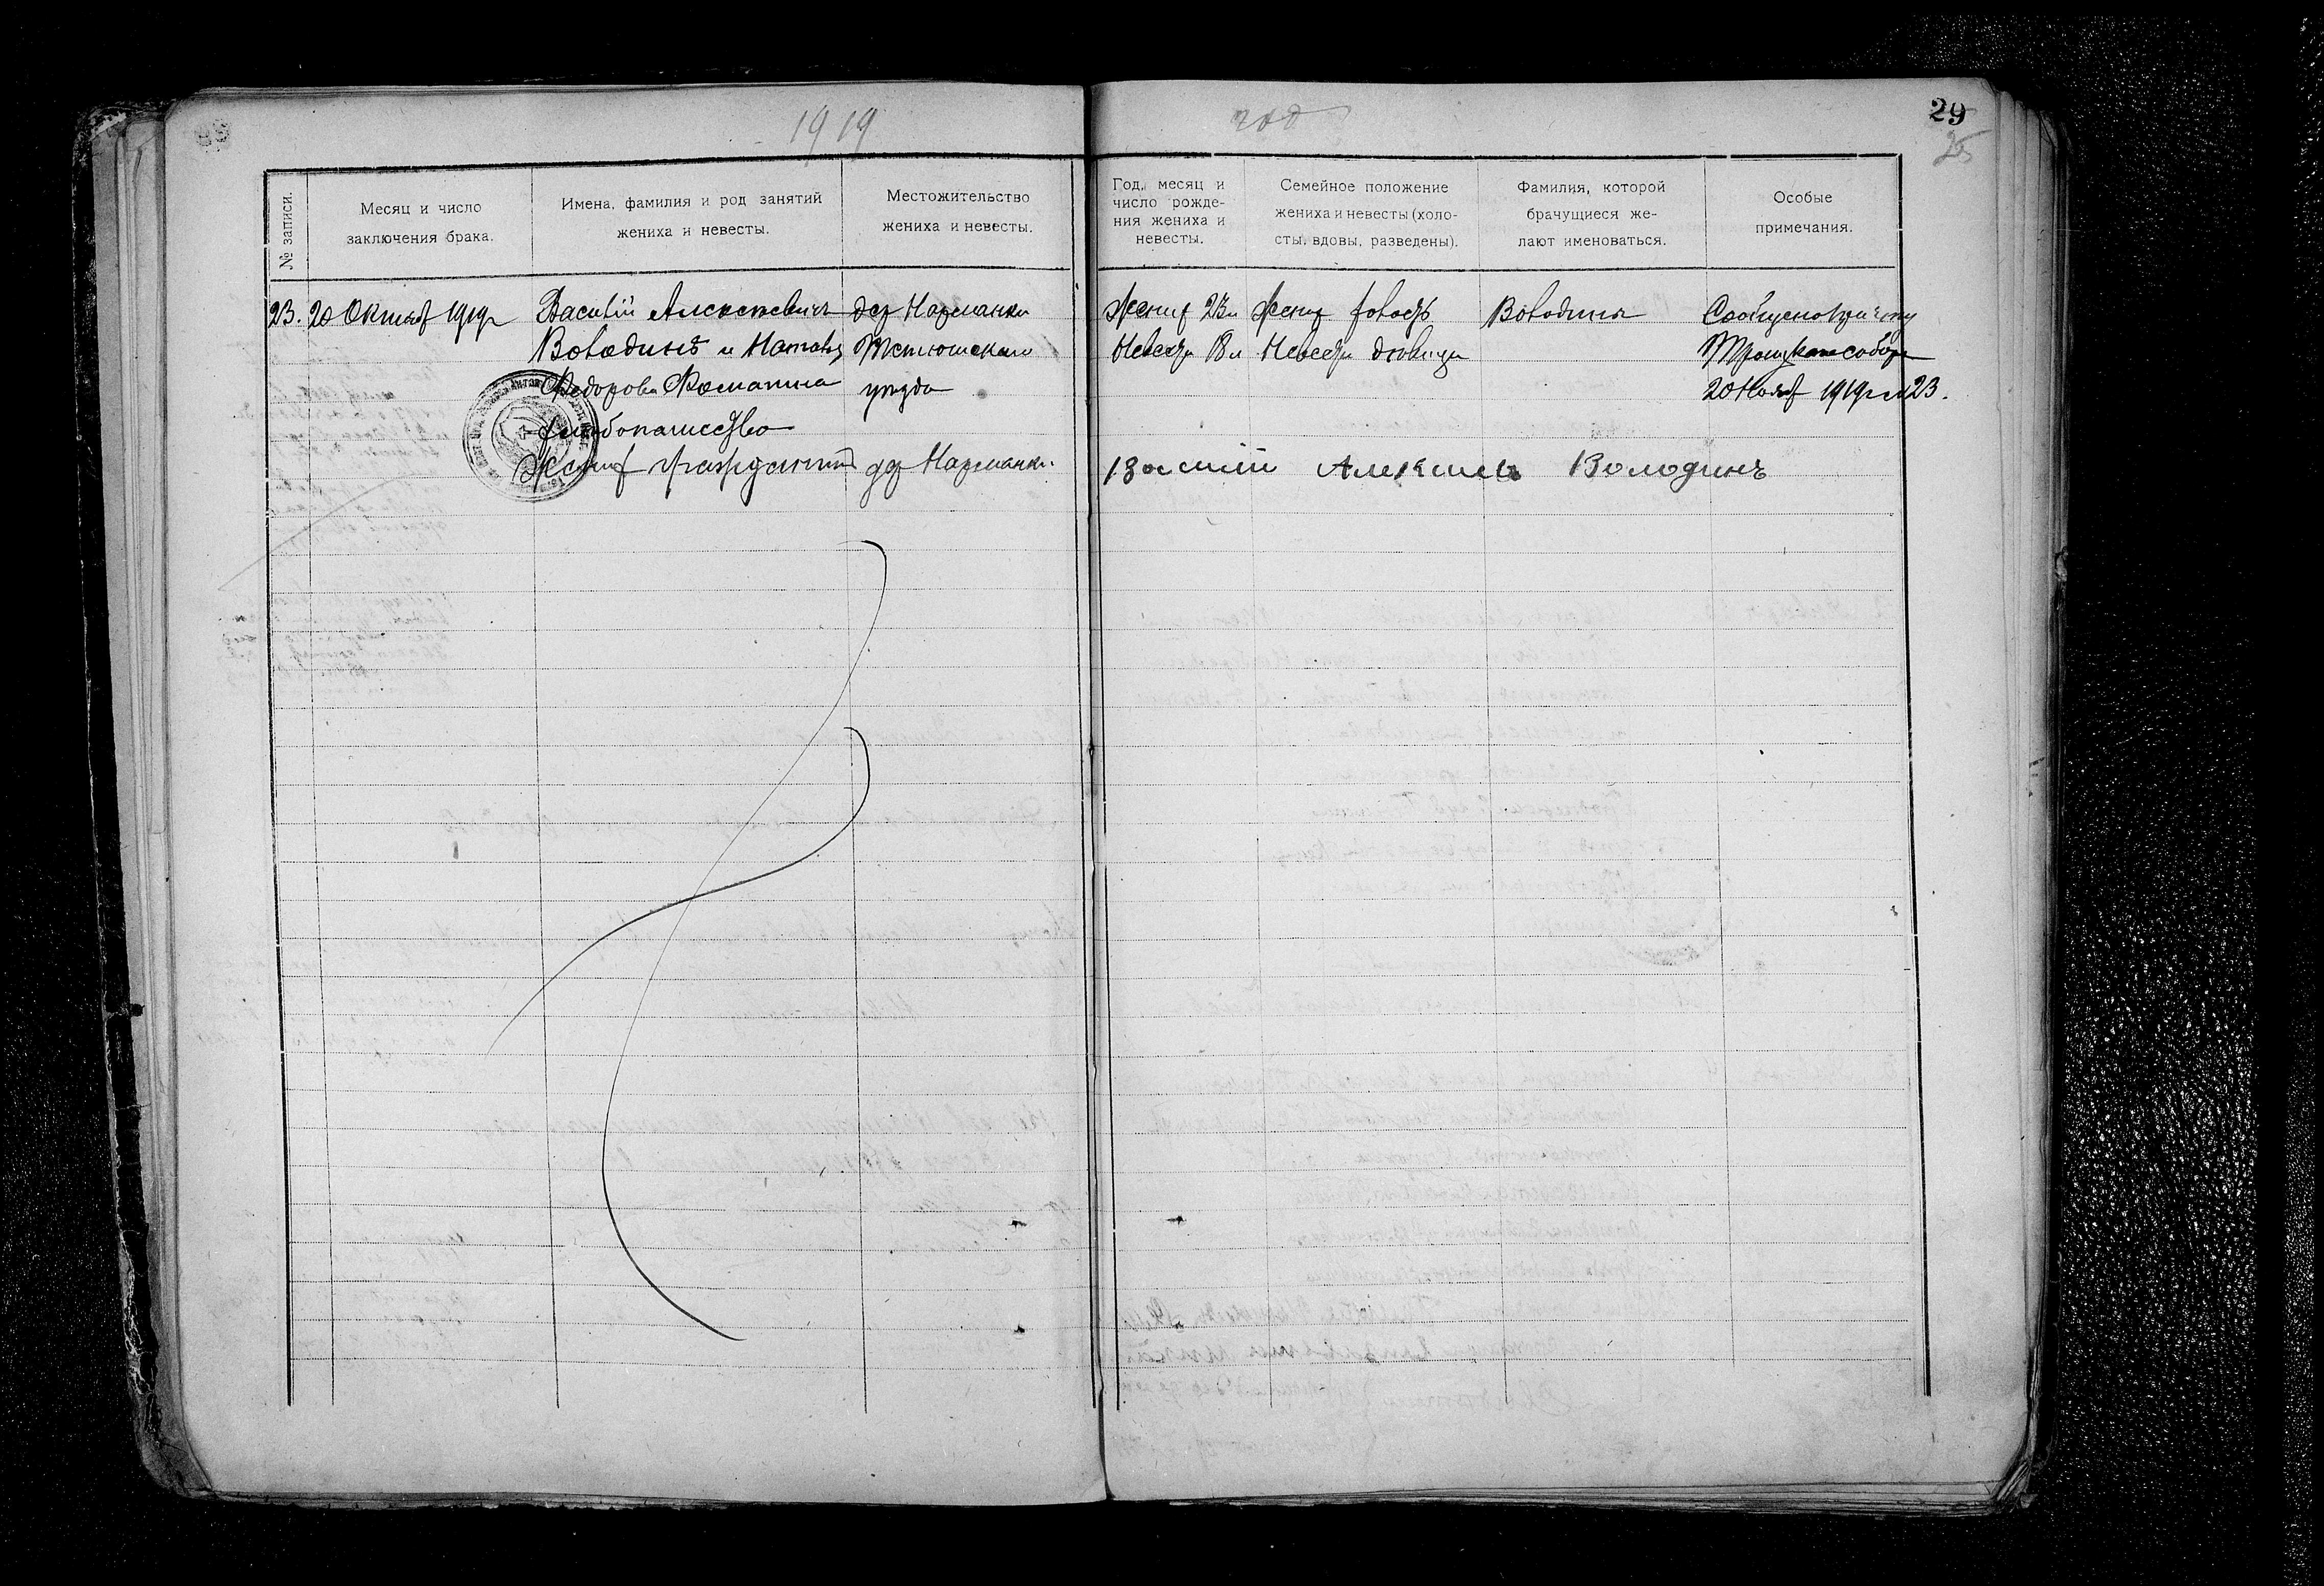 1919 год
29
25
№ записи.
Месяц и число
заключения брака.
Имена, фамилия и род занятий
жениха и невесты.
Местожительство
жениха и невесты.
Год, месяц и
число рожде-
ния жениха и
невесты.
Семейное положение
жениха и невесты (холо-
сты, вдовы, разведены).
Фамилия, которой
брачущиеся же-
лают именоваться.
Особые
примечания.
23.
20 Октяб 1919г
Василий Алексеевичъ
Володинъ и
Федорова
хлебопашество
Жених гражданинъ
дер
Тетюшскаго
уезда
дер
Жених 23л
Невеста 18л
Жених холост
Невеста девица
Володины
Сообщено причту
Троицкаго собора
20 Нояб 1919г № 23.
Василий Алексеев Володинъ